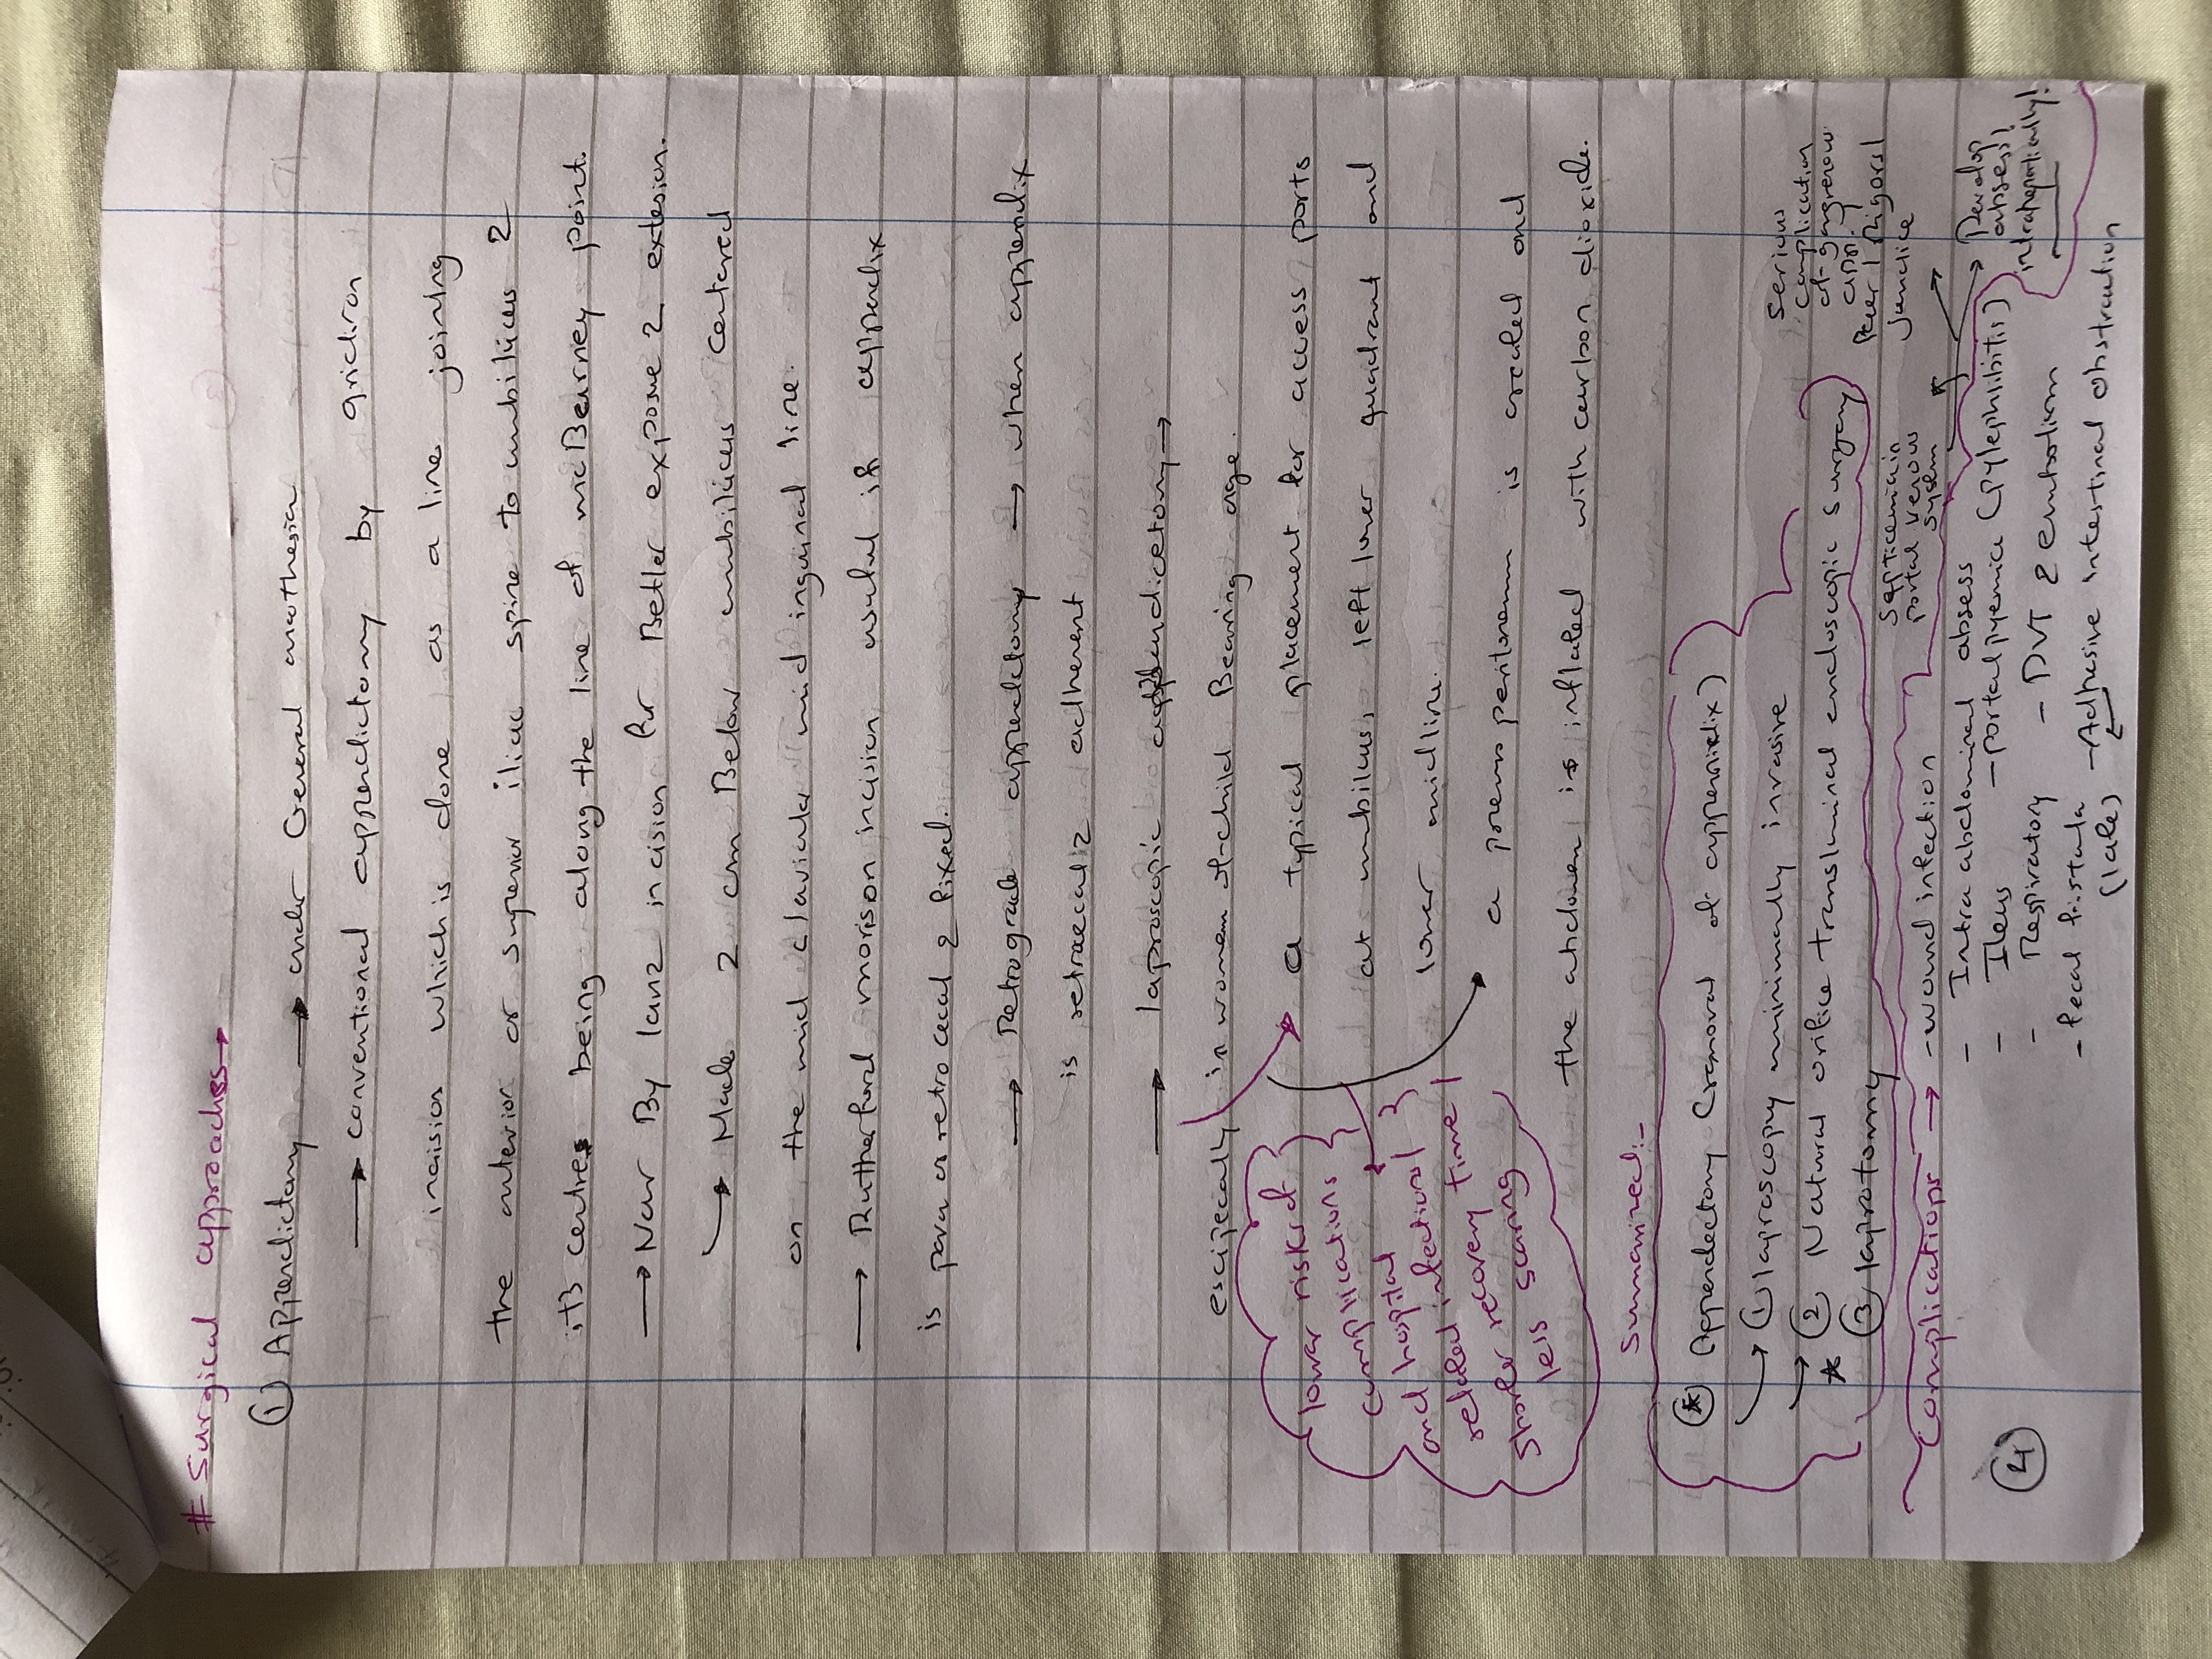 # Surgical approaches→
① Appendictomy → under General anathesia
→ conventional appendictomy by gridiron
incision which is done as a line joining
the anterior or superior iliac spine to umbilicus 2
its centre being along the line of mcBearney point.
→ Now By lanz incision for Better expose 2 extesion.
→ Made 2 cm Below umbilicus centered
on the mid clavicular mid inguinal line.
→ Rutherford morison incision useful if appendix
is para or retrocecal 2 fixed.
→ Retrograde appendectomy → when appendix
is retraecal 2 adherent
→ laproscopic appendicetomy →
escipecally in women of child Bearing age.
a typical placement for access ports
at umbilicus, left lower quadrant and
lower midline.
a pneumo peritoneum is created and
the abdomen is inflated with carbon dioxide.
lower risk of
complications
and hospital
related infections
shorter recovery time
less scarring
Summarized:-
* Appendectomy (removal of appendix)
→ ① laproscopy minimally invasive
→ ② Natural orifice transluminal endoscopic surgery
* ③ laprotomy
complications → - wound infection
- Intra abdominal absess
- Ileus - portalpyemia (pylephlibitis)
- Respiratory - DVT 2 embolism
- fecal fistula - Adhesive intestinal obstruction
(late)
Septicemia in
portal venous
system
Serious
complication
of gangrenous
appn.
fever / Rigors /
jundice
Develop
absess
intrahepatically!
④